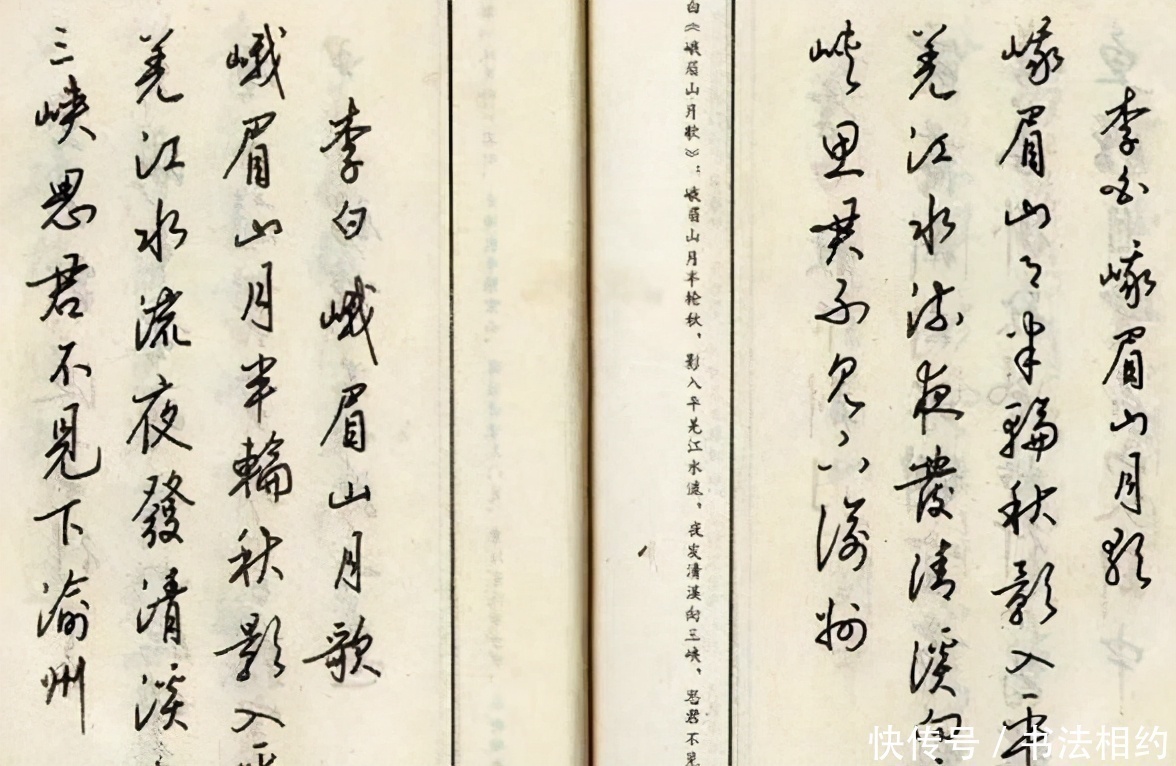 李白 峨眉山月歌
峨眉山月半輪秋影入平
羌江水流夜發清溪向
峡思君不见下渝州
白《峨眉山月歌》：峨眉山月半轮秋，影入平羌江水流，夜发清溪向三峡，思君不见
李白峨眉山月歌
峨眉山月半輪秋影入平
羌江水流夜發清溪
三峡思君不見下渝州
快传号 / 书法相约